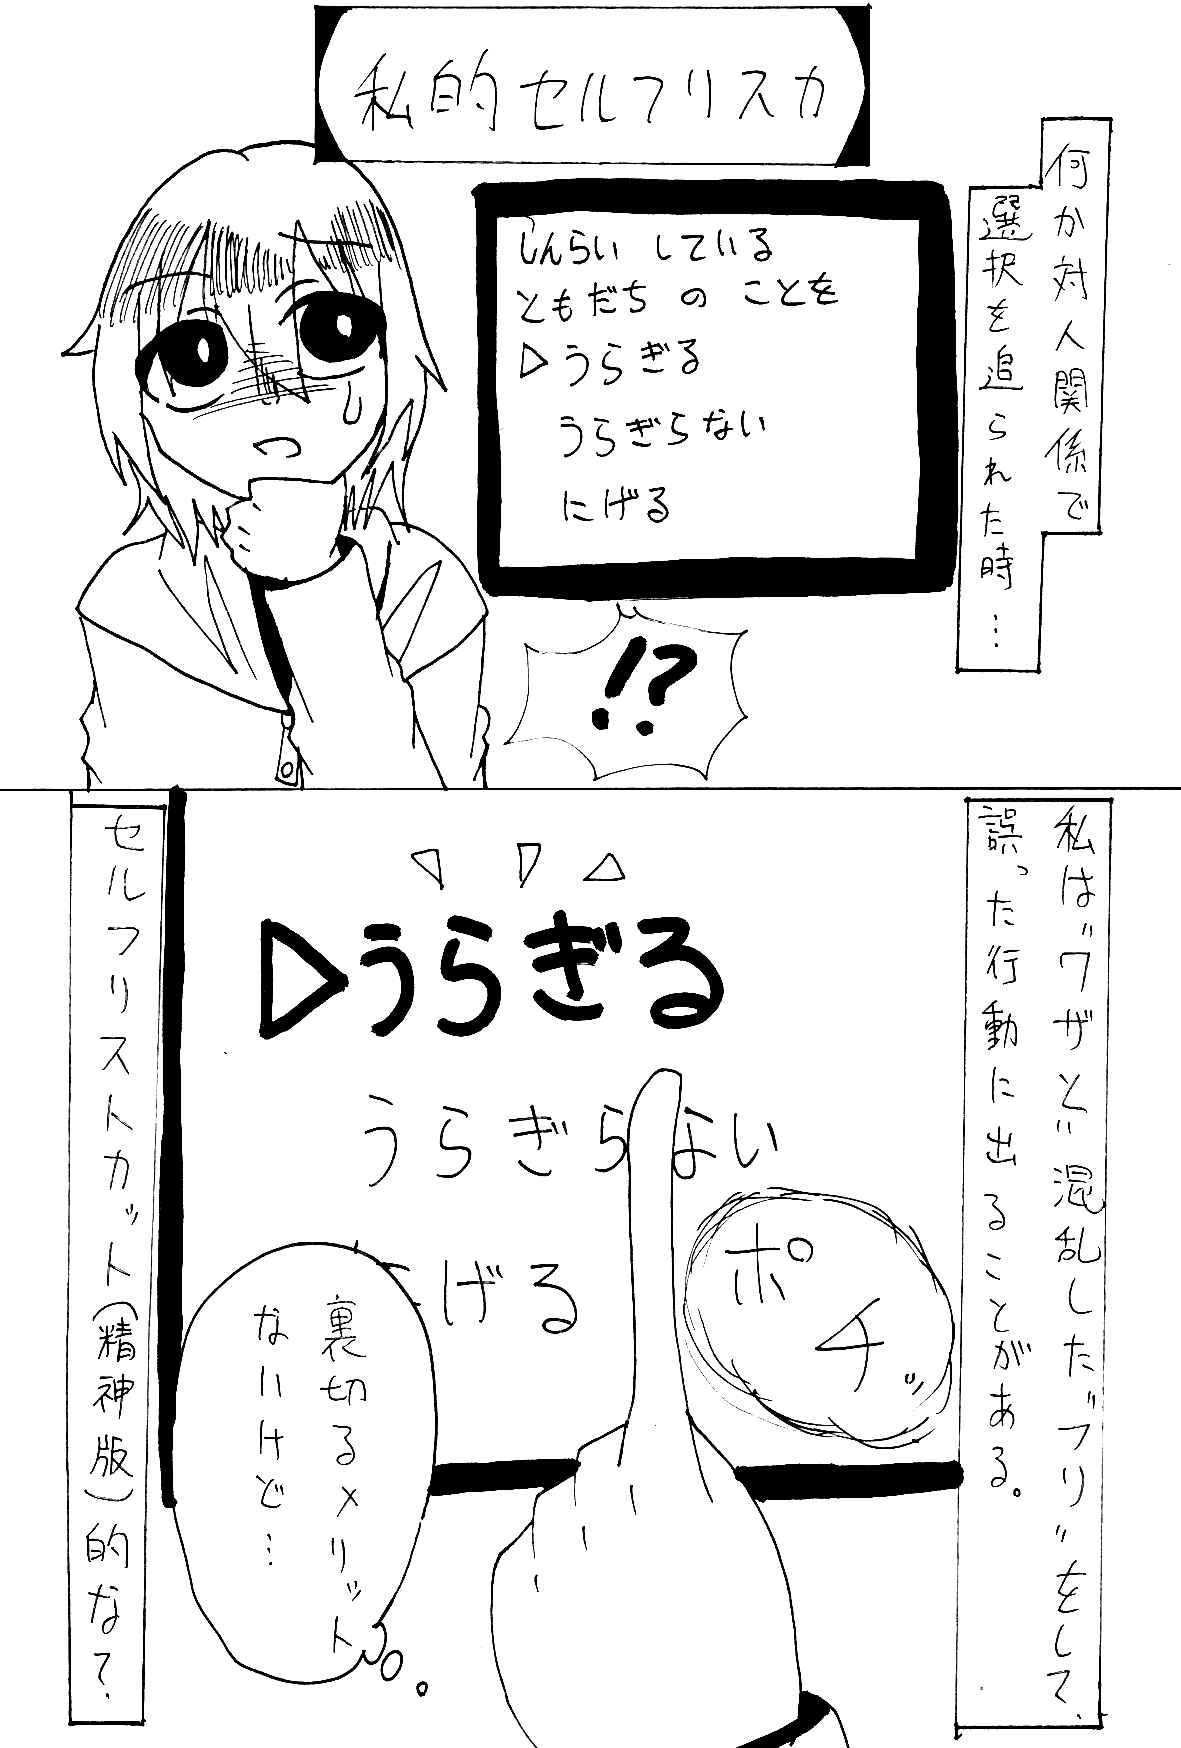 私的セルフリスカ
何か対人関係で
選択を迫られた時…
しんらい している
ともだち の ことを
▷うらぎる
うらぎらない
にげる
!?
私は"ワザと"混乱した"フリ"をして、
誤った行動に出ることがある。
▷うらぎる
うらぎらない
げる
ポチッ
裏切るメリット
ないけど…
セルフリストカット(精神版)的な?